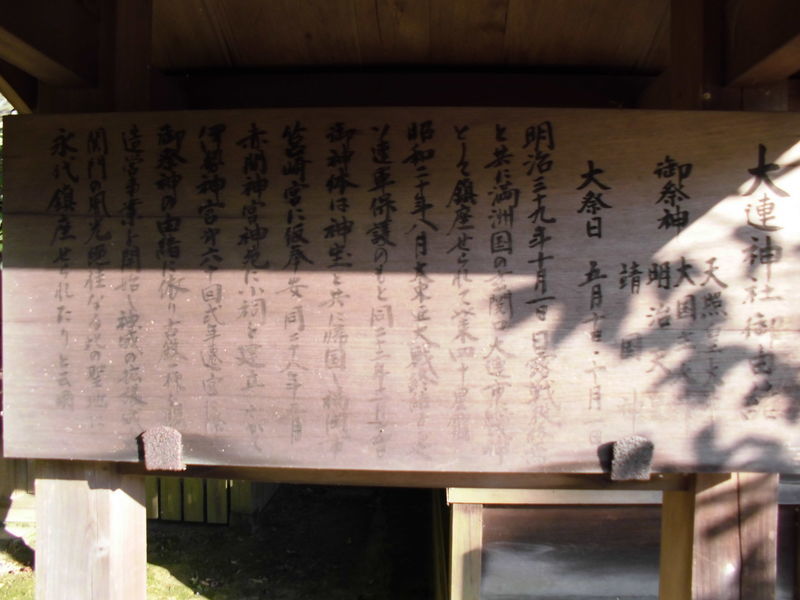 大連神社御由緒
御祭神 天照皇大神
大国主大神
明治天皇
靖国神
大祭日 五月十日・十月一日
明治三十九年十月一日日露戦役
と共に満洲国の玄関口大連市
として鎮座せられて以来四十
昭和二十年八月大東亜大戦終結
ソ連軍保護のもと同二十二年
御神体は神宝と共に帰国し福岡
筥崎宮に仮奉安同二十八年
赤間神宮神苑に小祠を建立
伊勢神宮第六十回式年遷宮に際
御祭神の由緒に依り古殿一棟を
造営事業を開始し神域の
関門の風光絶佳なる此の聖地に
永代鎮座せられたりと云爾